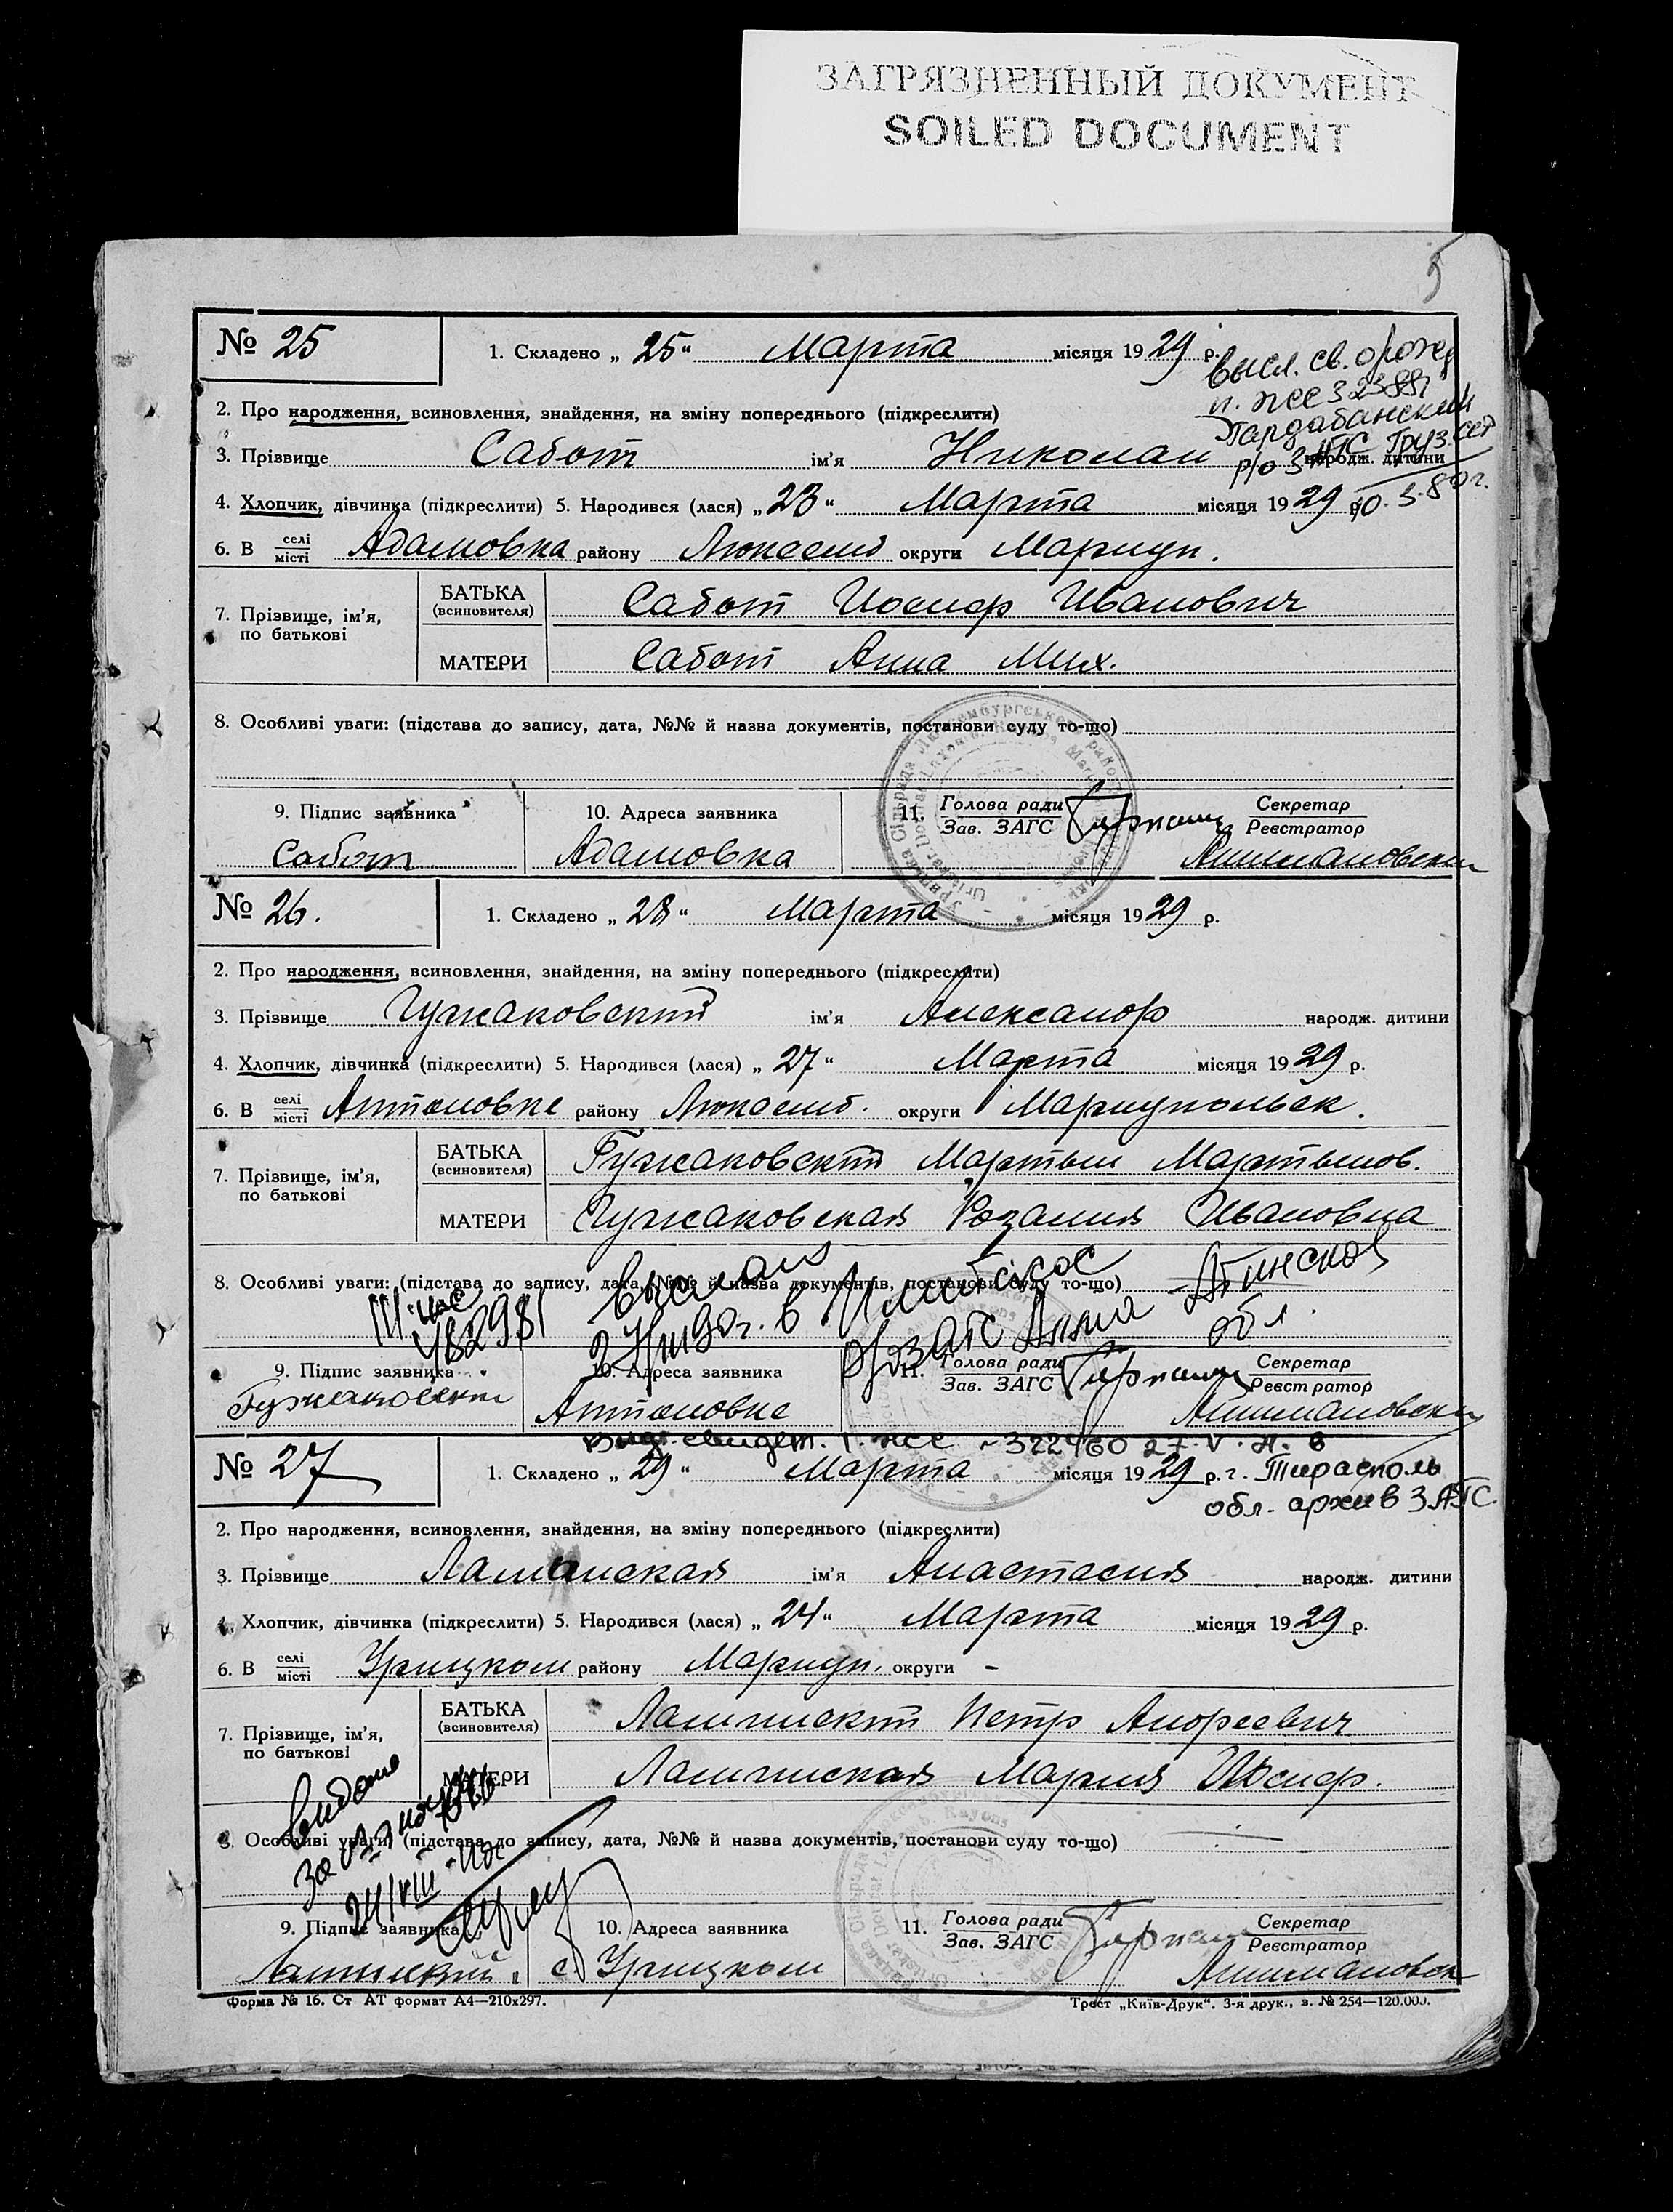 ЗАГРЯЗНЕННЫЙ ДОКУМЕНТ
SOILED DOCUMENT
5
№ 25
1. Складено „ 25 “ Марта місяця 1929 р.
высл. св. о рожд
п. жсс 3
Гардабанский
р/о ЗАГС Груз. ССР
2. Про народження, всиновлення, знайдення, на зміну попереднього (підкреслити)
3. Прізвище Сабот ім’я Николай народж. дитини
4. Хлопчик, дівчинка (підкреслити) 5. Народився (лася) „ 23 “ Марта місяця 1929 р.
6. В селі місті Адамовка району Люксемб округи Мариуп.
7. Прізвище, ім’я, по батькові
БАТЬКА (всиновителя) Сабот Иосиф Иванович
МАТЕРИ Сабот Анна Мих.
8. Особливі уваги: (підстава до запису, дата, №№ й назва документів, постанови суду то-що)
9. Підпис заявника
10. Адреса заявника
11. Голова ради Зав. ЗАГС
Секретар Реєстратор
Сабот
Адамовка
№ 26.
1. Складено „ 28 “ Марта місяця 1929 р.
2. Про народження, всиновлення, знайдення, на зміну попереднього (підкреслити)
3. Прізвище Гужаковский ім’я Александр народж. дитини
4. Хлопчик, дівчинка (підкреслити) 5. Народився (лася) „ 27 “ Марта місяця 1929 р.
6. В селі місті Антоновке району Люксемб. округи Мариупольск.
7. Прізвище, ім’я, по батькові
БАТЬКА (всиновителя) Гужаковский Мартын Мартынов.
МАТЕРИ Гужаковская Розалия Ивановна
8. Особливі уваги: (підстава до запису, дата, №№ й назва документів, постанови суду то-що)
выслано
в
р/о ЗАГС
обл.
9. Підпис заявника
10. Адреса заявника
11. Голова ради Зав. ЗАГС
Секретар Реєстратор
Гужаковский
Антоновке
свидет. I. жсс № 322460 27. V. в
№ 27
1. Складено „ 29 “ Марта місяця 1929 р.
г. Тирасполь
обл. архив ЗАГС
2. Про народження, всиновлення, знайдення, на зміну попереднього (підкреслити)
3. Прізвище ім’я Анастасия народж. дитини
4. Хлопчик, дівчинка (підкреслити) 5. Народився (лася) „ 24 “ Марта місяця 1929 р.
6. В селі місті Урицком району Мариуп. округи –
7. Прізвище, ім’я, по батькові
БАТЬКА (всиновителя) Петр Андреевич
МАТЕРИ Мария Иосиф.
Видано
8. Особливі уваги: (підстава до запису, дата, №№ й назва документів, постанови суду то-що)
24/VIII
9. Підпис заявника
10. Адреса заявника
11. Голова ради Зав. ЗАГС
Секретар Реєстратор
с. Урицком
Форма № 16. Ст АТ формат А4—210х297.
Трест „Київ-Друк“. 3-я друк., з. № 254—120.000.